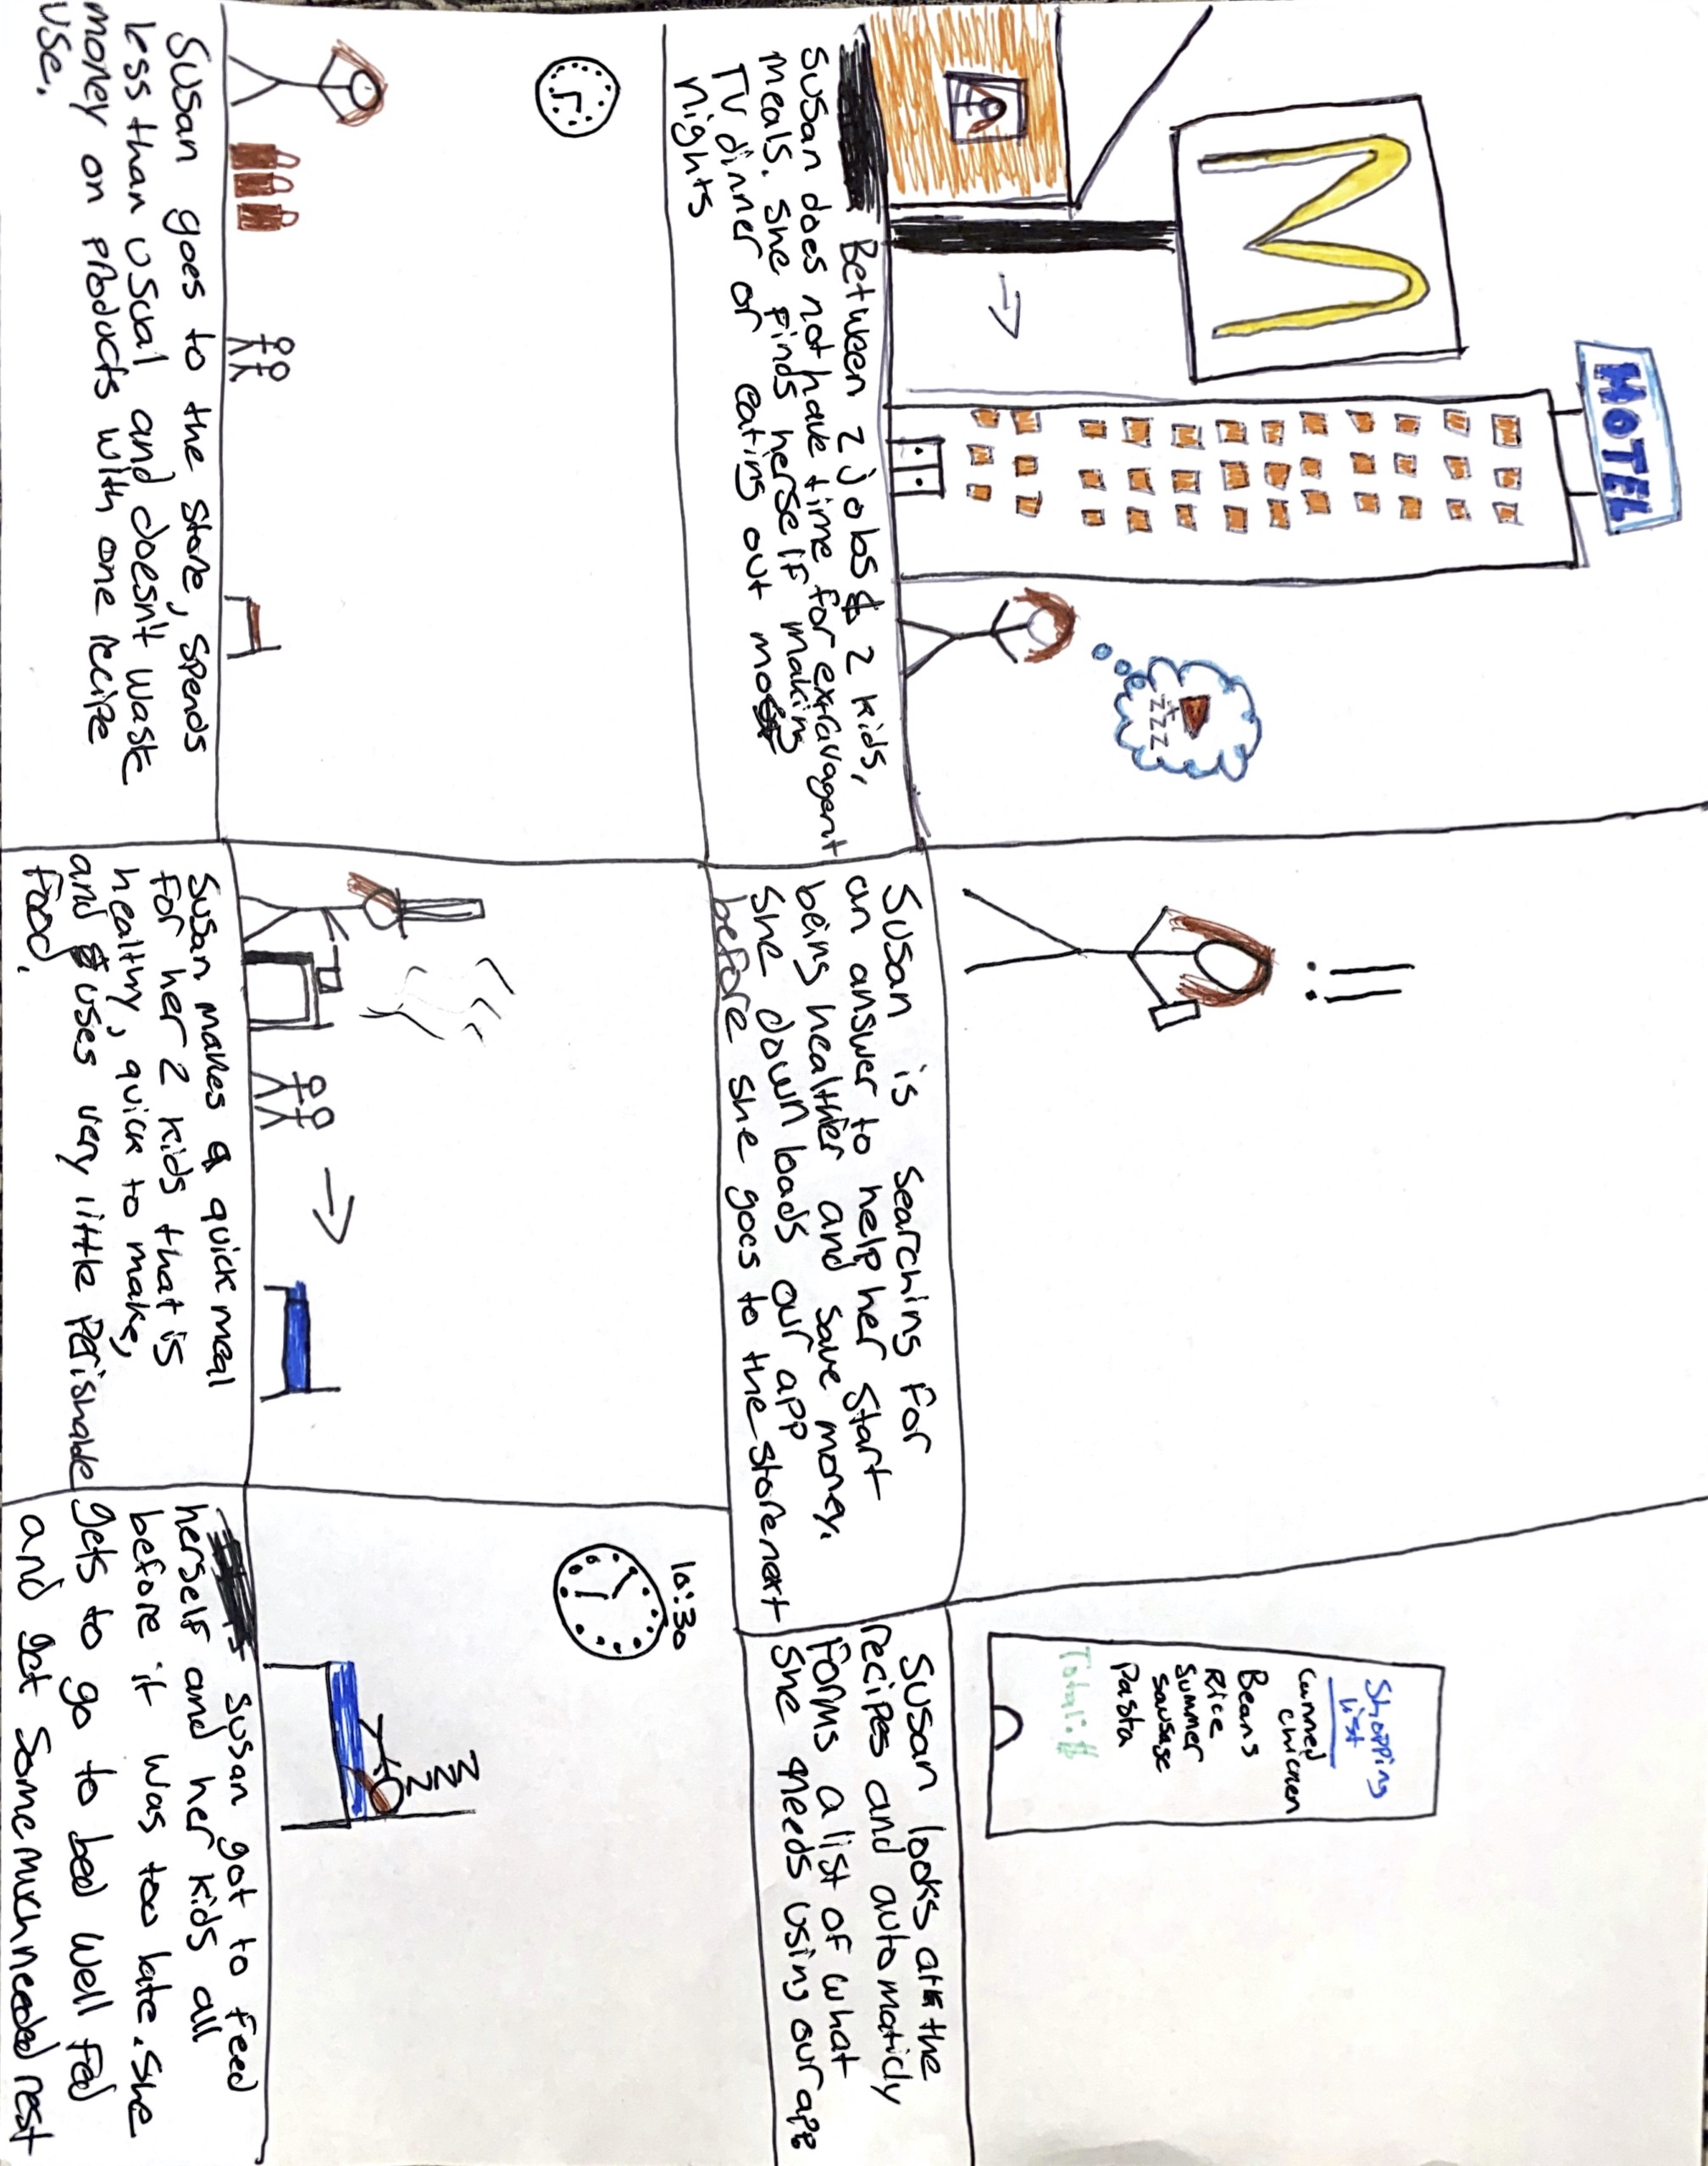 M
MOTEL
zzz
Between 2 jobs & 2 kids,
Susan does not have time for extravagent
meals. She finds herself making
TV dinner or eating out most
nights
!!
Susan is searching for
an answer to help her start
being healthier and save money.
She downloads our app
before she goes to the store next
Shopping
list
Canned
chicken
Beans
Rice
Summer
sausage
Pasta
Total: $
Susan looks at the
recipes and automaticly
forms a list of what
she needs using our app
Susan goes to the store, spends
less than usual and doesn't waste
money on products with one recipe
use.
Susan makes a quick meal
for her 2 kids that is
healthy, quick to make,
and uses very little perishable
food.
10:30
zzz
Susan got to feed
herself and her kids all
before it was too late. She
gets to go to bed well fed
and get some much needed rest